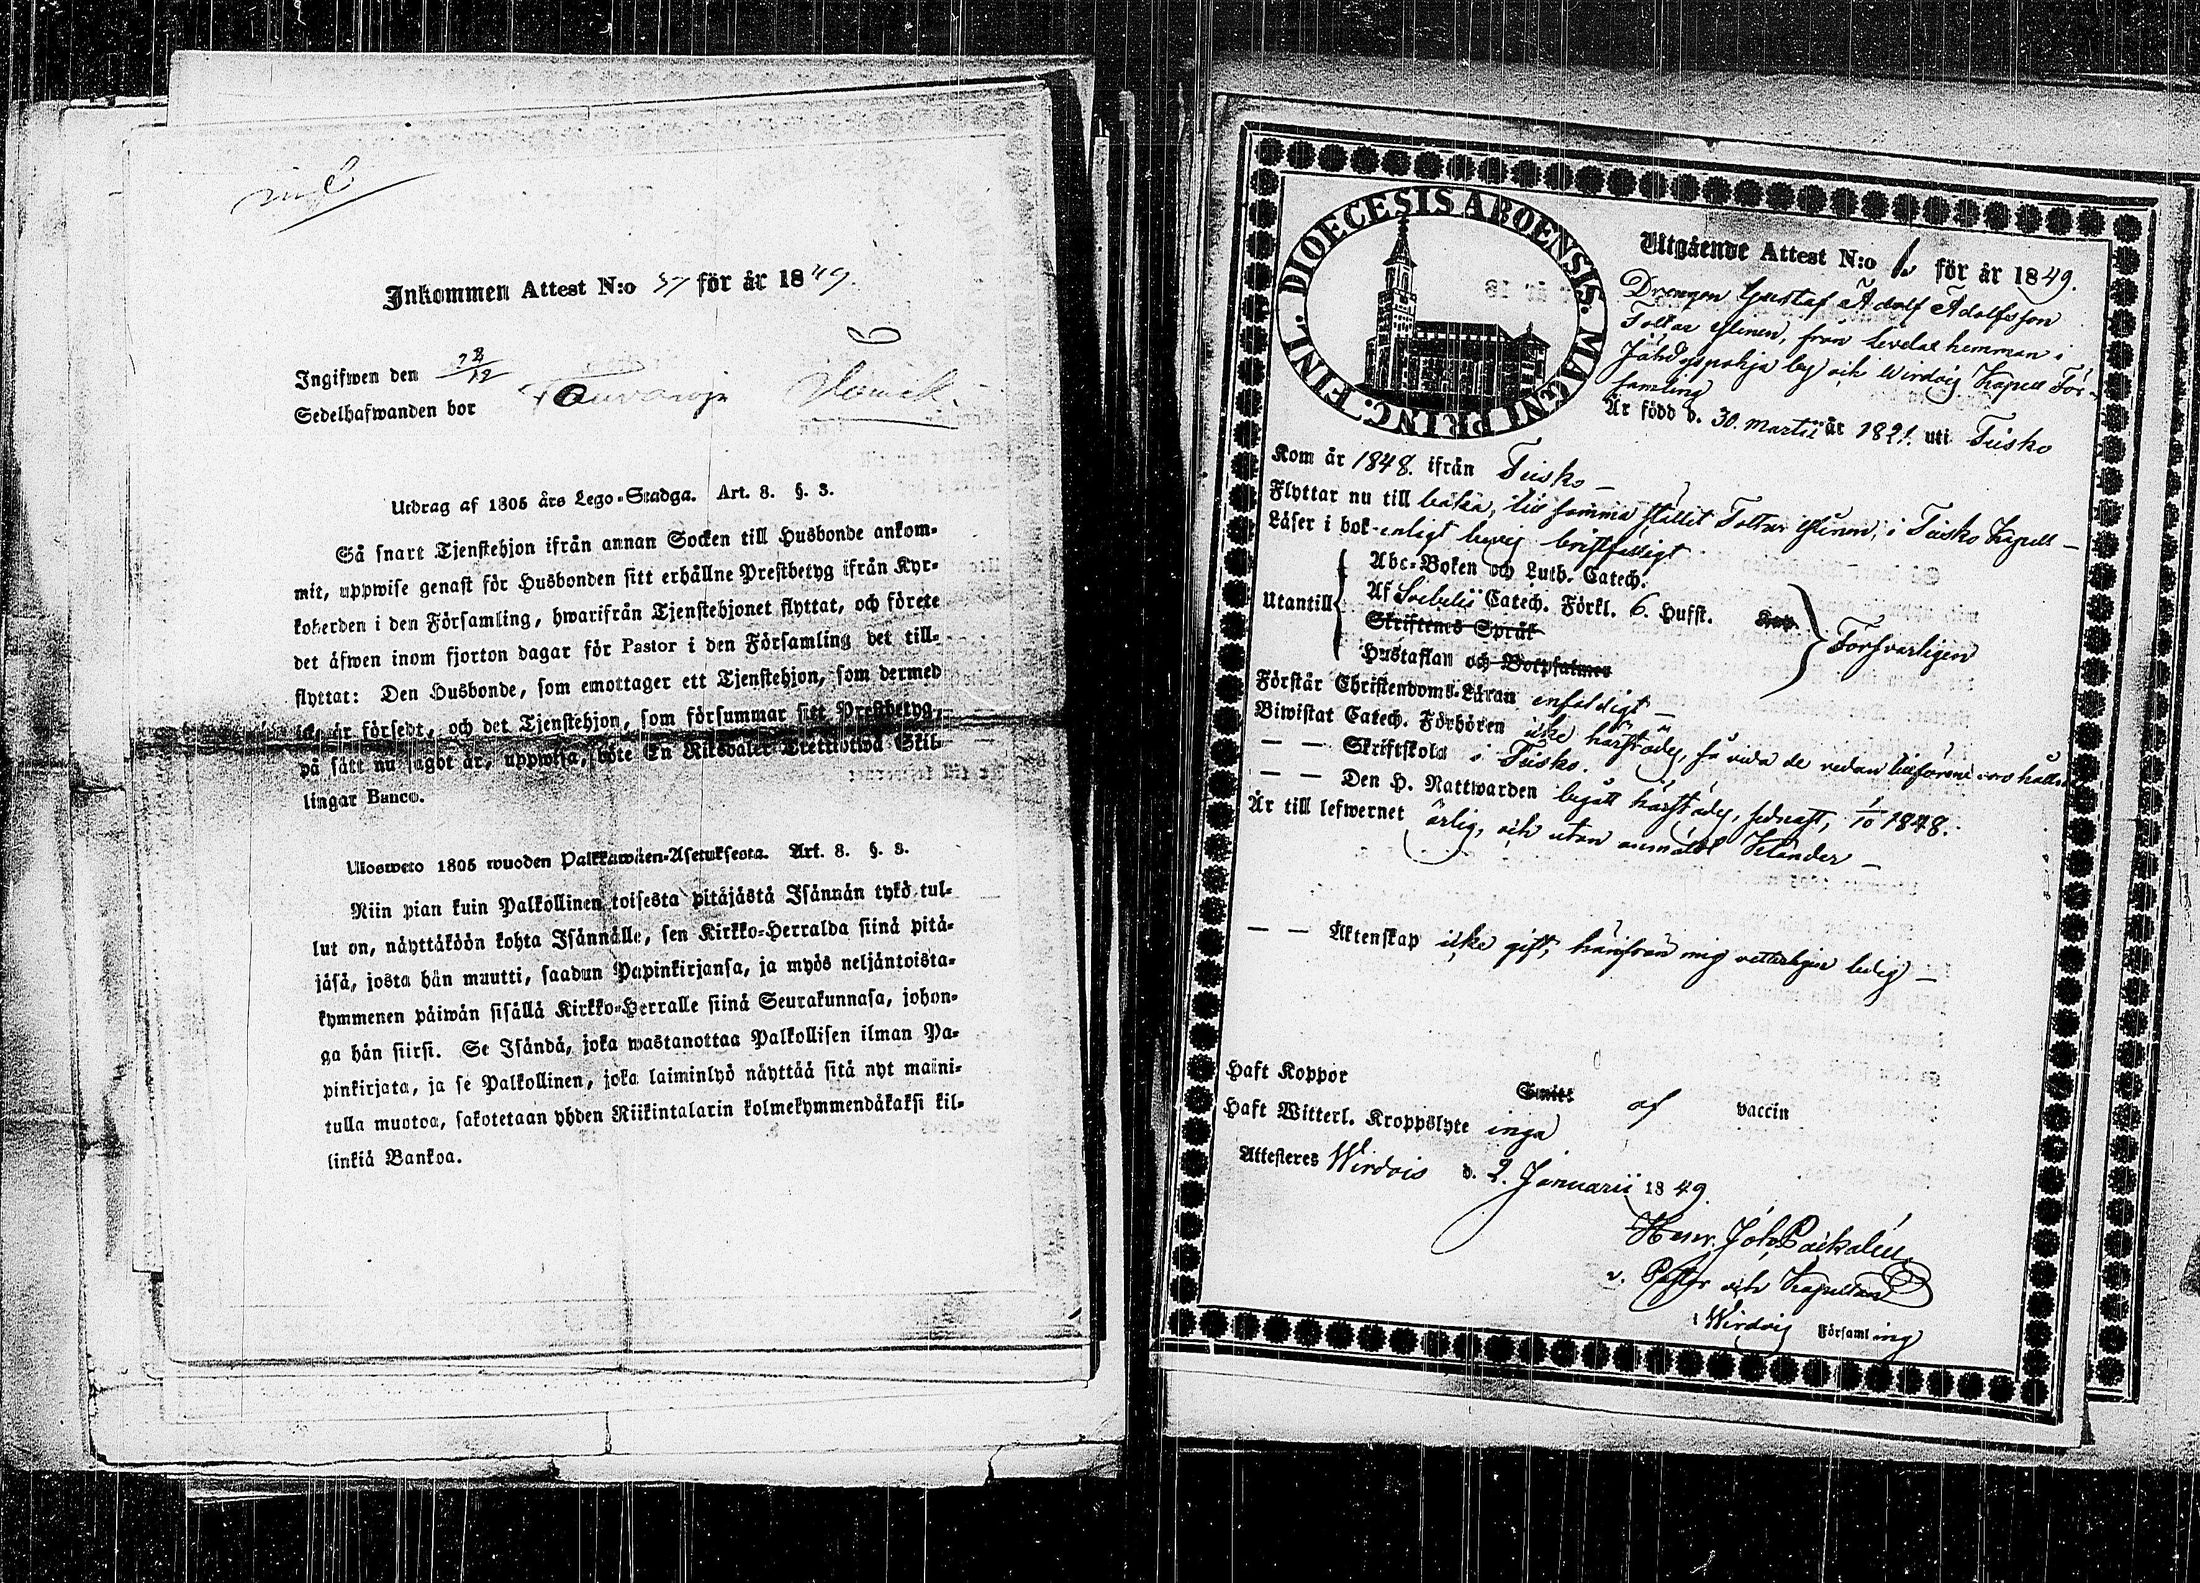 Inkommen Attest N:o 37 för år 1849.
Ingifwen den 28/12
Sedelhafwanden bor
Utdrag af 1805 års Lego-Stadga. Art. 8. §. 3.
Så snart Tjenstehjon ifrån annan Socken till Husbonde ankom-
mit, uppwise genast för Husbonden sitt erhållne Prestbetyg ifrån Kyr-
koherden i den Församling, hwarifrån Tjenstehjonet flyttat, och förete
det äfwen inom fjorton dagar för Pastor i den Församling det till-
flyttat: Den Husbonde, som emottager ett Tjenstehjon, som dermed
icke är försedt, och det Tjenstehjon, som försummar sitt Prestbetyg,
på sätt nu sagdt är, uppwisa, böte En Riksdaler Trettiotwå Skil-
lingar Banco.
Ulosweto 1805 wuoden Palkkawäen-Asetuksesta. Art. 8. §. 3.
Niin pian kuin Palkollinen toisesta pitäjästä Isännän tykö tul-
lut on, näyttäköön kohta Isännälle, sen Kirkko-Herralda siinä pitä-
jäsä, josta hän muutti, saadun Papinkirjansa, ja myös neljäntoista-
kymmenen päiwän sisällä Kirkko-Herralle siinä Seurakunnasa, johon-
ga hän siirsi. Se Isändä, joka wastanottaa Palkollisen ilman Pa-
pinkirjata, ja se Palkollinen, joka laiminlyö näyttää sitä nyt maini-
tulla muotoa, sakotetaan yhden Riikintalarin kolmekymmendäkaksi kil-
linkiä Bankoa.
DIOECESIS ABOENSIS. MAGNI PRINC. FINL.
Utgående Attest N:o 1. för år 1849.
Drengen Gustaf Adolf Adolfsson
från hemman i
by och Wirdois Kapell För-
samling
Är född d. 30. martii år 1821. uti Teisko
Kom år 1848. ifrån Teisko
Flyttar nu till samma stället i Teisko Kapell
Läser i bok enligt
Utantill
Abc-Boken och Luth. Catech.
Af Svebelii Catech. Förkl. 6. Hufst.
Skriftenes Språk
Hustaflan och Botpsalmen
Försvarligen
Förstår Christendoms-Läran enfaldigt
Biwistat Catech. Förhören icke härstädes, så vida de redan hållne
— — Skriftskola i Teisko.
— — Den H. Nattwarden begått härstädes, sednast, 1/10 1848.
Är till lefwernet ärlig, och utan anmäldt klander
— — Äktenskap icke gift, härifrån mig vetterligen ledig
Haft Koppor Smitt af vaccin
Haft Witterl. Kroppslyte inga
Attesteres Wirdois d. 2. Januarii 1849.
Henr. Joh.
v. Pastor och Kapellan
i Wirdois Församling